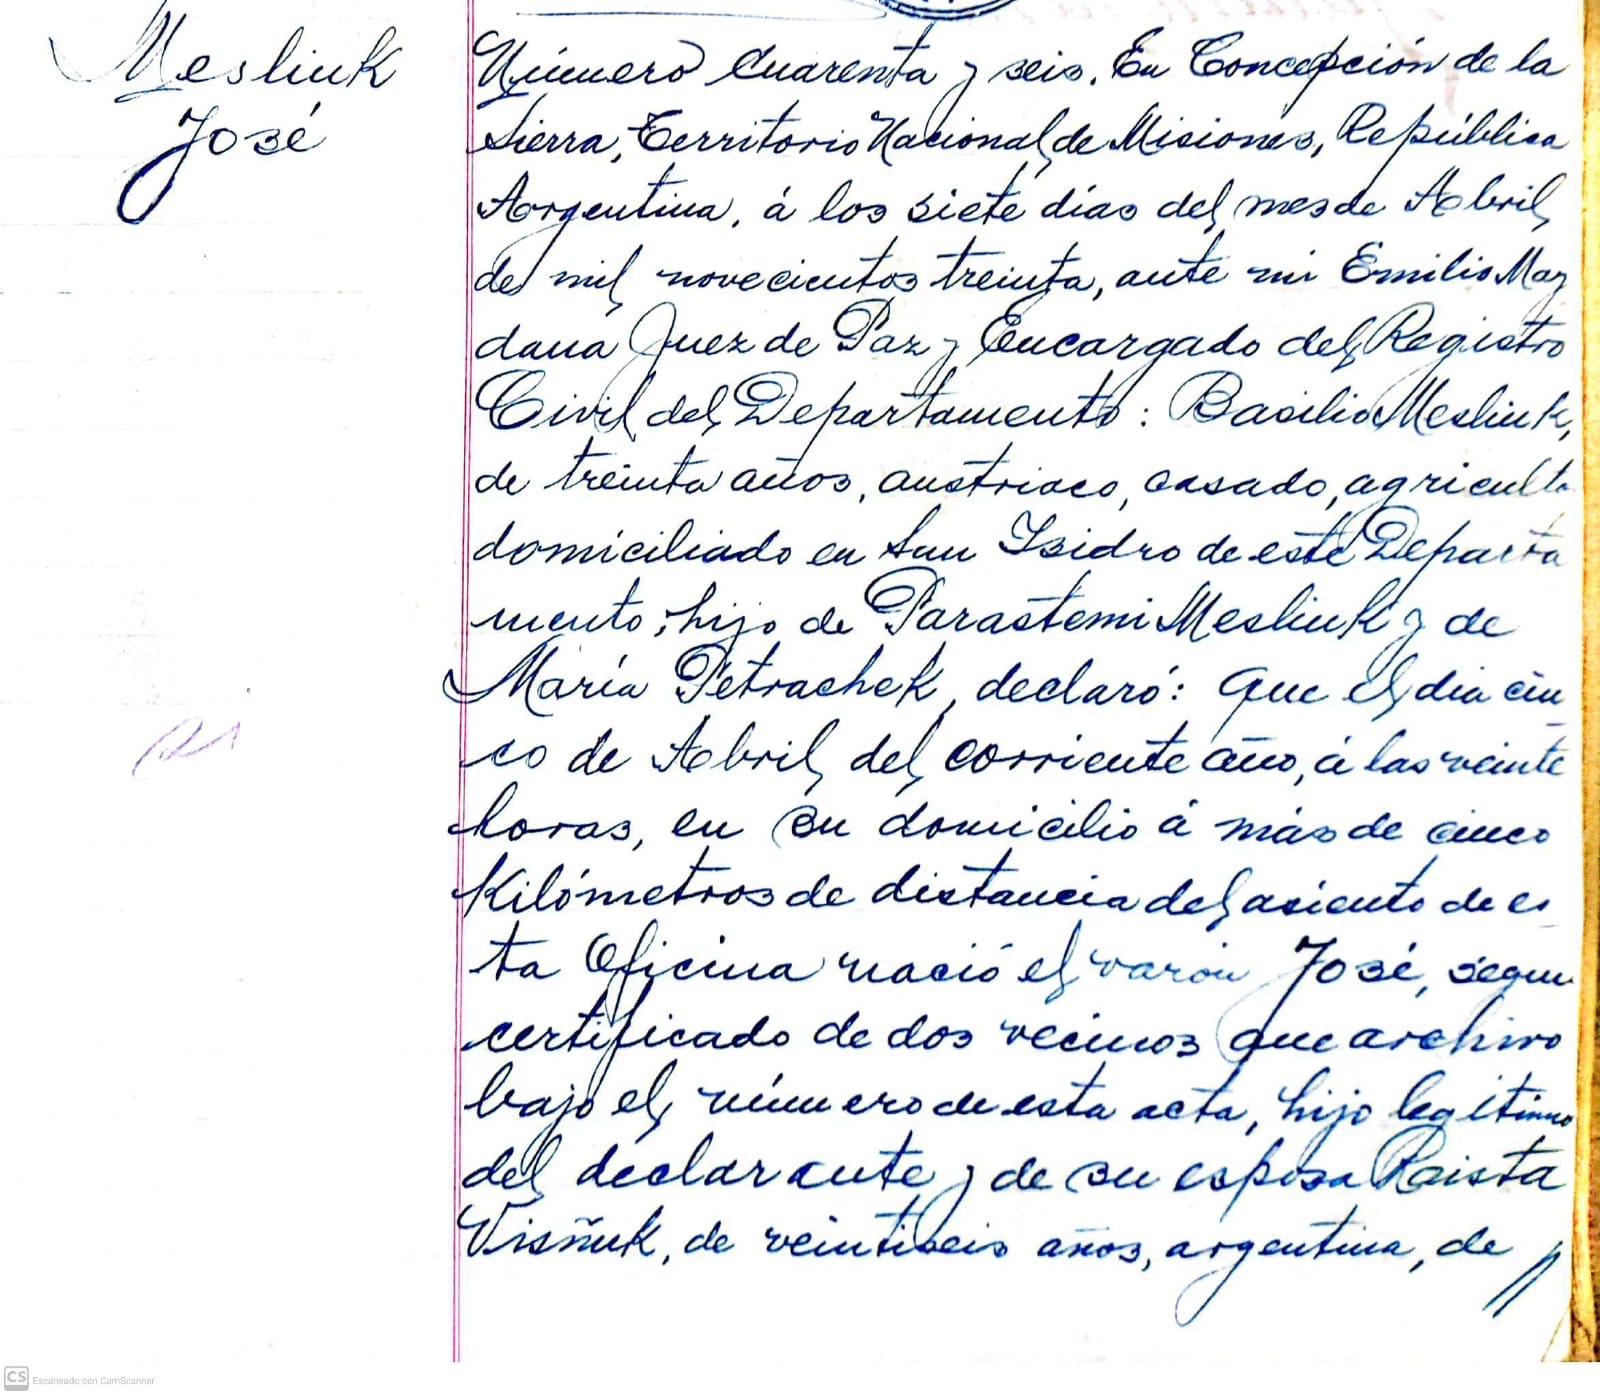 Mesliuk
José
Número Cuarenta y seis. En Concepción de la
Sierra, Territorio Nacional de Misiones, República
Argentina, á los siete días del mes de Abril
de mil novecientos treinta, ante mi Emilio May
dana Juez de Paz y Encargado del Registro
Civil del Departamento: Basilio Mesliuk,
de treinta años, austriaco, casado, agriculto
domiciliado en San Isidro de este Departa
mento; hijo de Parastemi Mesliuk y de
María Petrachek, declaró: Que el día cin
co de Abril del corriente año, á las veinte
horas, en su domicilio á más de cinco
Kilómetros de distancia del asiento de es
ta Oficina nació el varón José, segun
certificado de dos vecinos que archivo
bajo el número de esta acta, hijo legítimo
del declarante y de su esposa Raista
Visñuk, de veintiseis años, argentina, de
CS Escaneado con CamScanner